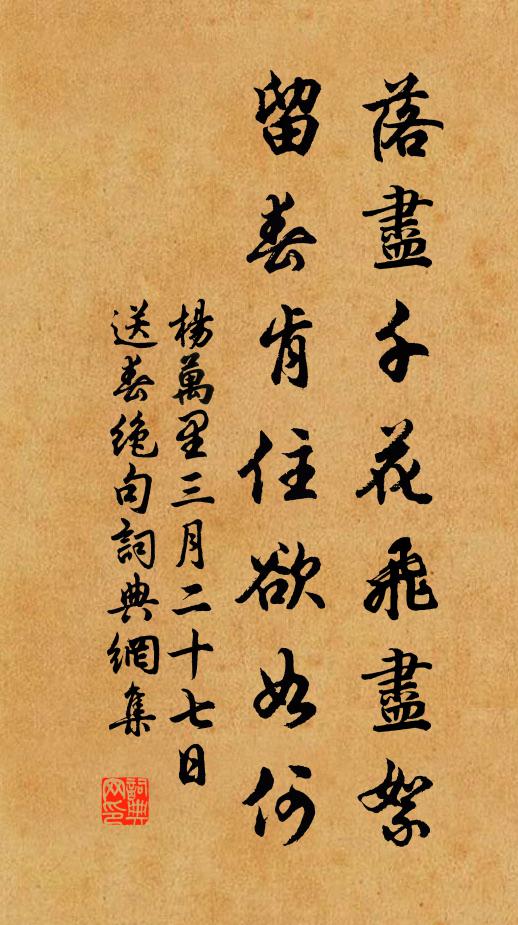 落盡千花飛盡絮
留春肯住欲如何
楊萬里三月二十七日
送春絶句詞典網集
詞典网印